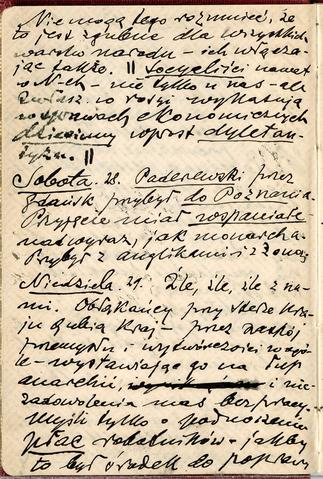 Nie mogą tego rozumieć, że
to jest zgubne dla wszystkich
warstw narodu – ich włącza-
jąc także. || Socyaliści nawet
w N-ch – nie tylko u nas – ale
zwłasz. w rosyi wykazują
w sprawach ekonomicznych
dziecinny wprost dyletan-
tyzm. ||
Sobota. 28. Paderewski przez
Gdańsk przybył do Poznania.
Przyjęcie miał wspaniałe
nadwyraz, jak monarcha.
Przybył z anglikami i z żoną
Niedziela. 29. Źle, źle, źle z na-
mi. Obłąkańcy przy sterze kra-
ju gubią kraj – przez zastój
przemysłu i wytwórczości wogó-
le – wystawiając go na łup
anarchii, i nie-
zadowolenia mas bez pracy.
Myśli tylko o podnoszeniu
płac robotników – jakby
to był środek do poprawy